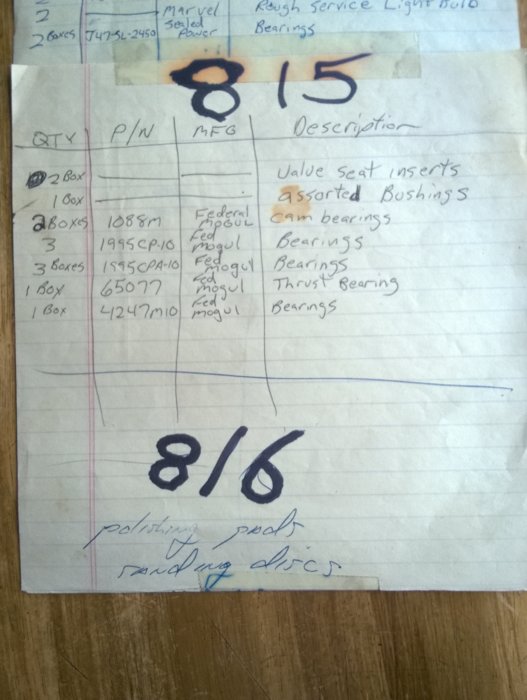 2 Marvel Rough Service Light Bulb
2 Boxes J47-SL-2450 Sealed Power Bearings
815
QTY P/N MFG Description
2 Box Value seat inserts
1 Box assorted Bushings
2 Boxes 1088M Federal MOGUL cam bearings
3 1995CP-10 Fed mogul Bearings
3 Boxes 1995CPA-10 Fed mogul Bearings
1 Box 65077 Fed mogul Thrust Bearing
1 Box 4247M10 Fed mogul Bearings
816
polishing pads
sanding discs